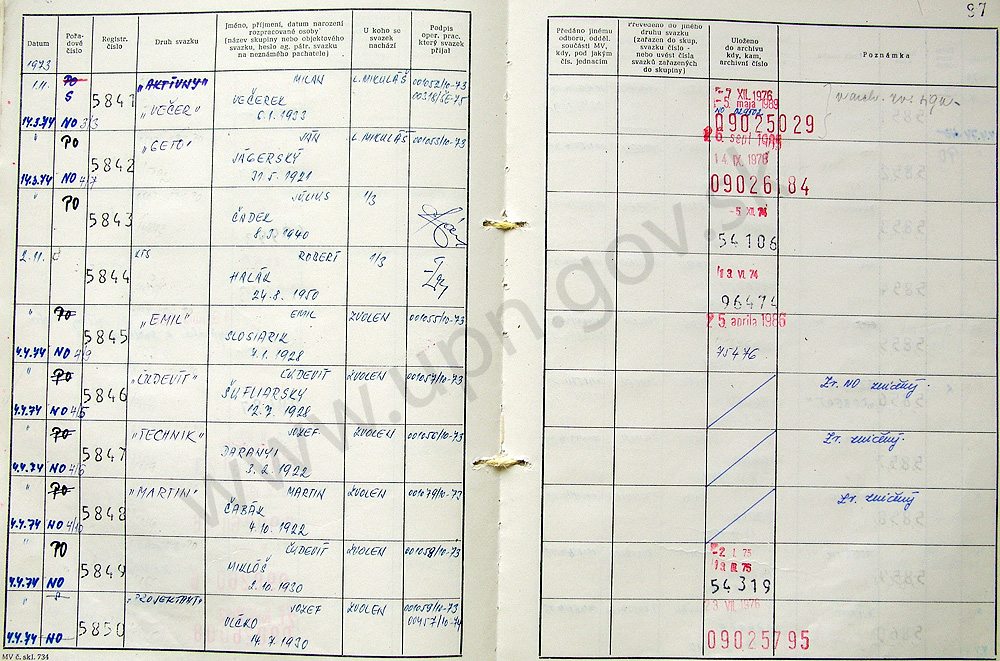 97
Datum
Pořa-
dové
číslo
Registr.
číslo
Druh svazku
Jméno, příjmení, datum narození
rozpracované osoby
(název skupiny nebo objektového
svazku, heslo ag. pátr. svazku
na neznámého pachatele)
U koho se
svazek
nachází
Podpis
oper. prac.
který svazek
přijal
Předáno jinému
odboru, odděl.
součásti MV,
kdy, pod jakým
čís. jednacím
Převedeno do jiného
druhu svazku
(zařazen do skup.
svazku číslo -
nebo uvést čísla
svazků zařazených
do skupiny)
Uloženo
do archivu
kdy, kam,
archivní číslo
Poznámka
1973
1.11. PO "AKTÍVNY" MILAN L. MIKULÁŠ 001052/10-73
S 5841 VEČEREK
"VEČER" 6.1.1933
14.3.74 NO 3/3
-7 XII. 1976
-5. mája 1989
09025029
" PO "GETO" JÁN L. MIKULÁŠ 001053/10-73
5842 JÁGERSKÝ
14.3.74 NO 4/7 31.5.1921
14. IX. 1976
09026184
" PO JÚLIUS 1/3
5843 ČADEK
8.5.1940
-5 XII. 74
54106
2.11. 5844 ROBERT 1/3
HALÁK
24.8.1950
19. VI. 74
96474
PO "EMIL" EMIL ZVOLEN 001055/10-73
5845 SLOSIARIK
4.4.74 NO 4/9 4.1.1928
25. apríla 1986
75476
" PO "ĽUDEVÍT" ĽUDEVÍT ZVOLEN 001057/10-73
5846 ŠUFLIARSKY
4.4.74 NO 4/5 12.7.1928
Zr. NO zničný.
" PO "TECHNIK" JOZEF ZVOLEN 001056/10-73
5847 DARANYI
4.4.74 NO 4/6 3.2.1922
Zr. zničný.
" PO "MARTIN" MARTIN ZVOLEN 001079/10-73
5848 ČABÁK
4.4.74 NO 4/10 4.10.1922
Zr. zničný
" PO ĽUDEVÍT ZVOLEN 001058/10-73
5849 MIKLOŠ
4.4.74 NO 2.10.1930
-2. I. 75
54319
" "PROJEKTANT" JOZEF ZVOLEN 001059/10-73
00457/10-74
5850 VLČKO
4.4.74 NO 14.7.1930
23. VII. 1976
09025795
MV č. skl. 734
www.upn.gov.sk